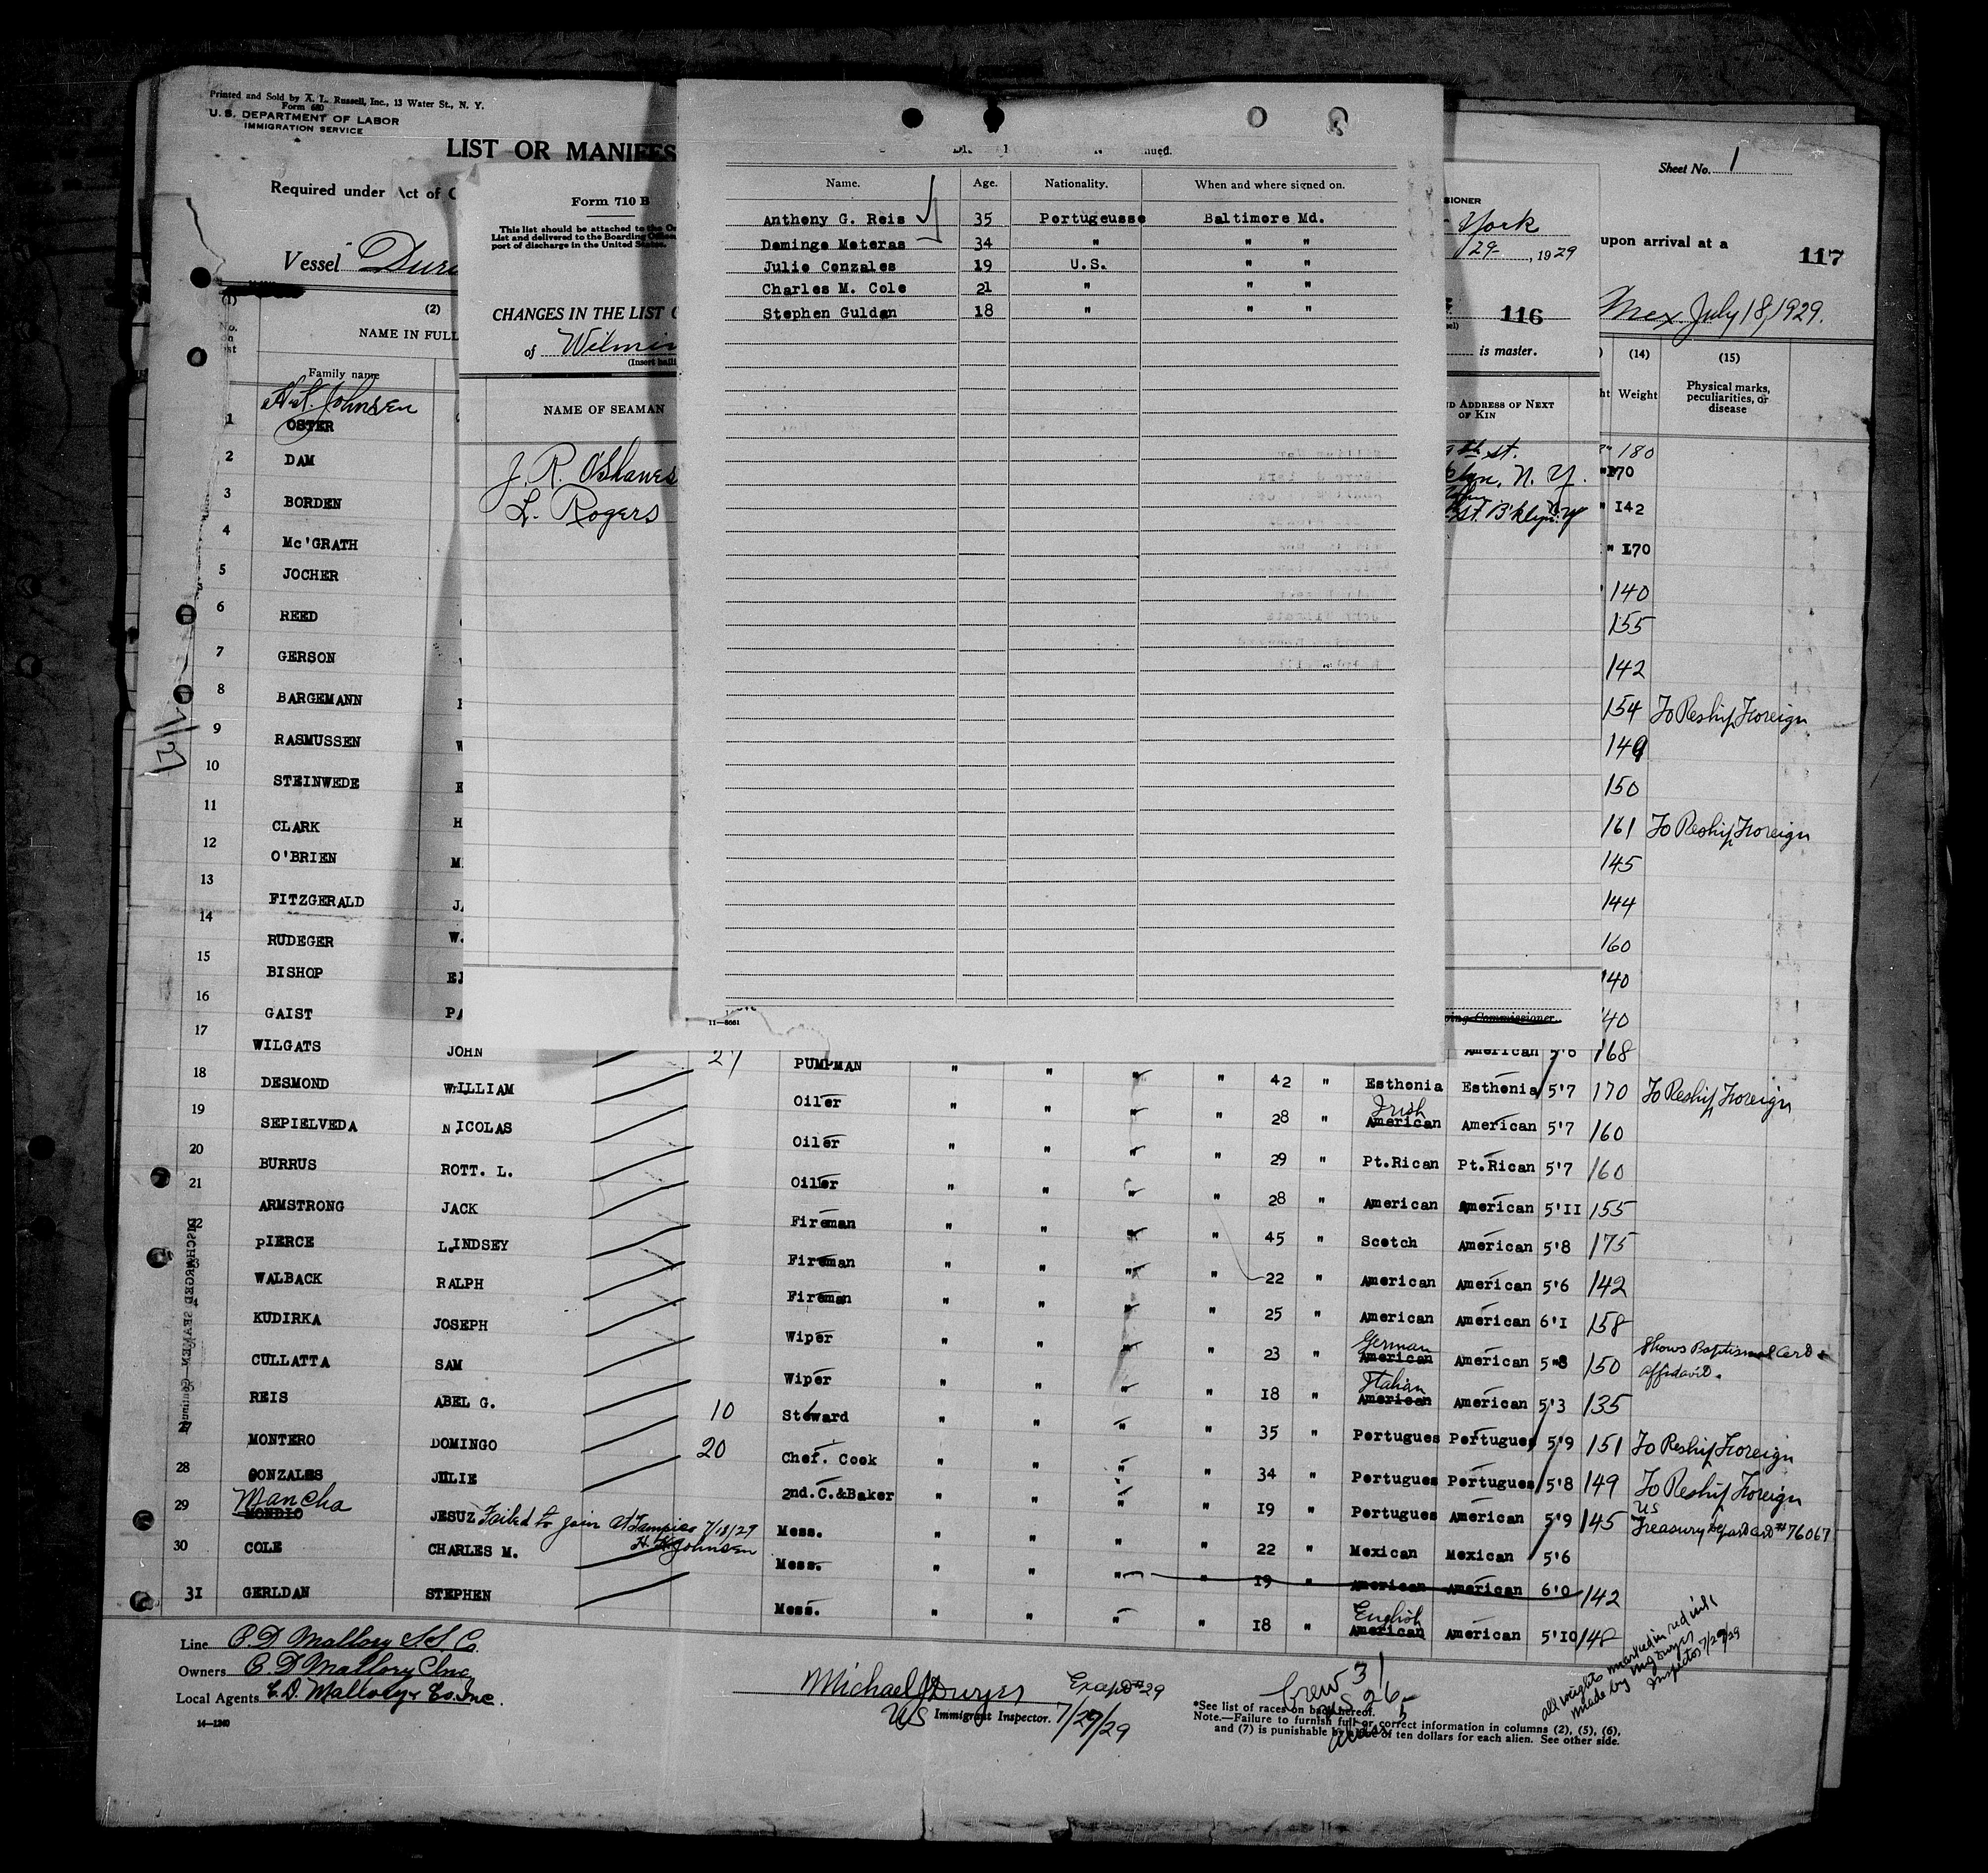 Printed and Sold by A. L. Russell, Inc., 13 Water St., N. Y.
Form 680
U. S. DEPARTMENT OF LABOR
IMMIGRATION SERVICE
LIST OR MANIFES
Required under Act of C
Vessel
Sheet No. 1
upon arrival at a
117
Mex. July 18, 1929.
(2)
NAME IN FULL
Family name
(14) (15)
Weight
Physical marks, peculiarities, or disease
Form 710 B
This list should be attached to the
List and delivered to the Boarding
port of discharge in the United States.
CHANGES IN THE LIST
of Wilmin
NAME OF SEAMAN
J. R. O'Shawes
L. Rogers
York
29, 1929
116
is master.
ADDRESS OF NEXT
OF KIN
9th st.
klyn, N. Y.
St. B'klyn. N.Y
nued.
Name. Age. Nationality. When and where signed on.
Anthony G. Reis 35 Portugeusse Baltimore Md.
Domingo Moteras 34 " " "
Julio Conzales 19 U.S. " "
Charles M. Cole 21 " " "
Stephen Guldan 18 " " "
11—8661
Commissioner.
H. K. Johnsen
1 OSTER 180
2 DAM 170
3 BORDEN 142
4 Mc'GRATH 170
5 JOCHER 140
6 REED 155
7 GERSON 142
8 BARGEMANN 154 To Reship Foreign
9 RASMUSSEN 149
10 STEINWEDE 150
11 CLARK 161 To Reship Foreign
12 O'BRIEN 145
13 FITZGERALD 144
14 RUDEGER 160
15 BISHOP 140
16 GAIST 140
17 WILGATS JOHN 27 PUMPMAN American 168
18 DESMOND WILLIAM Oiler " " " 42 " Esthonia Esthonia 5'7 170 To Reship Foreign
19 SEPIELVEDA NICOLAS Oiler " " " 28 " Irish American American 5'7 160
20 BURRUS ROTT. L. Oiler " " " 29 " Pt.Rican Pt.Rican 5'7 160
21 ARMSTRONG JACK Fireman " " " 28 " American American 5'II 155
22 PIERCE L.INDSEY Fireman " " " 45 " Scotch American 5'8 175
WALBACK RALPH Fireman " " " 22 " American American 5'6 142
KUDIRKA JOSEPH Wiper " " " 25 " American American 6'I 158
CULLATTA SAM Wiper " " " 23 " German American American 5"8 150 Shows Baptismal Card & affidavit.
REIS ABEL G. 10 Steward " " " 18 " Italian American American 5'3 135
27 MONTERO DOMINGO 20 Chef. Cook " " " 35 " Portugues Portugues 5'9 151 To Reship Foreign
28 GONZALES JULIE 2nd.C.&Baker " " " 34 " Portugues Portugues 5'8 149 To Reship Foreign
29 Mancha MONDIO JESUZ Failed to join at Tampico 7/18/29 H. K. Johnsen Mess. " " " 19 " Portugues American 5'9 145 US Treasury Card #76067
30 COLE CHARLES M. Mess. " " " 22 " Mexican Mexican 5'6
19 " American American 6'0 142
31 GERLDAN STEPHEN Mess. " " " 18 " English American American 5'IO 148
DISCHARGED SEAMEN—Continued
Line C. D. Mallory S.S. Co.
Owners C D Mallory Inc
Local Agents C. D. Mallory & Co. Inc.
14—1240
Michael J Dwyer
US Immigrant Inspector. 7/29/29
Crew 31
US 26
5
*See list of races on back hereof.
Note.—Failure to furnish full or correct information in columns (2), (5), (6),
and (7) is punishable by a fine of ten dollars for each alien. See other side.
all weights marked in red ink
made by
Inspector 7/29/29